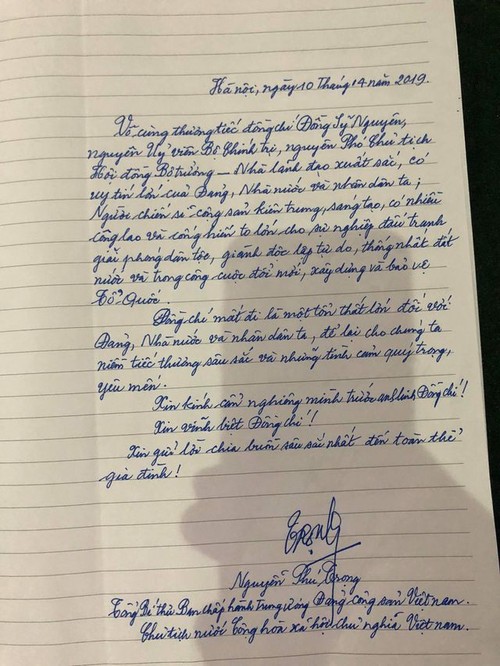 Hà nội, ngày 10 Tháng 4 năm 2019.
Vô cùng thương tiếc đồng chí Đồng Sỹ Nguyên,
nguyên Uỷ viên Bộ Chính trị, nguyên Phó Chủ tịch
Hội đồng Bộ trưởng – Nhà lãnh đạo xuất sắc, có
uy tín lớn của Đảng, Nhà nước và nhân dân ta;
Người chiến sĩ cộng sản kiên trung, sáng tạo, có nhiều
công lao và cống hiến to lớn cho sự nghiệp đấu tranh
giải phóng dân tộc, giành độc lập tự do, thống nhất đất
nước và trong công cuộc đổi mới, xây dựng và bảo vệ
Tổ Quốc.
Đồng chí mất đi là một tổn thất lớn đối với
Đảng, Nhà nước và nhân dân ta, để lại cho chúng ta
niềm tiếc thương sâu sắc và những tình cảm quý trọng,
yêu mến.
Xin kính cẩn nghiêng mình trước anh linh Đồng chí!
Xin vĩnh biệt Đồng chí!
Xin gửi lời chia buồn sâu sắc nhất đến toàn thể
gia đình!
Trọng
Nguyễn Phú Trọng
Tổng Bí thư Ban chấp hành trung ương Đảng cộng sản Việt nam.
Chủ tịch nước Cộng hoà xã hội chủ nghĩa Việt nam.